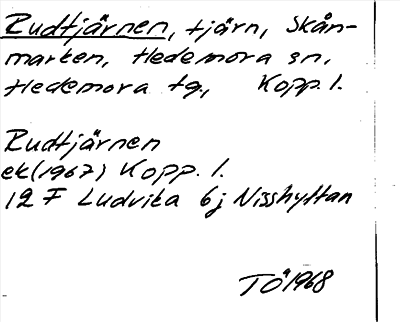 Rudtjärnen, tjärn, Skån-
marken, Hedemora sn,
Hedemora tg., Kopp. l.
Rudtjärnen
ek (1967) Kopp. l.
12 F Ludvika 6j Nisshyttan
TÖ 1968